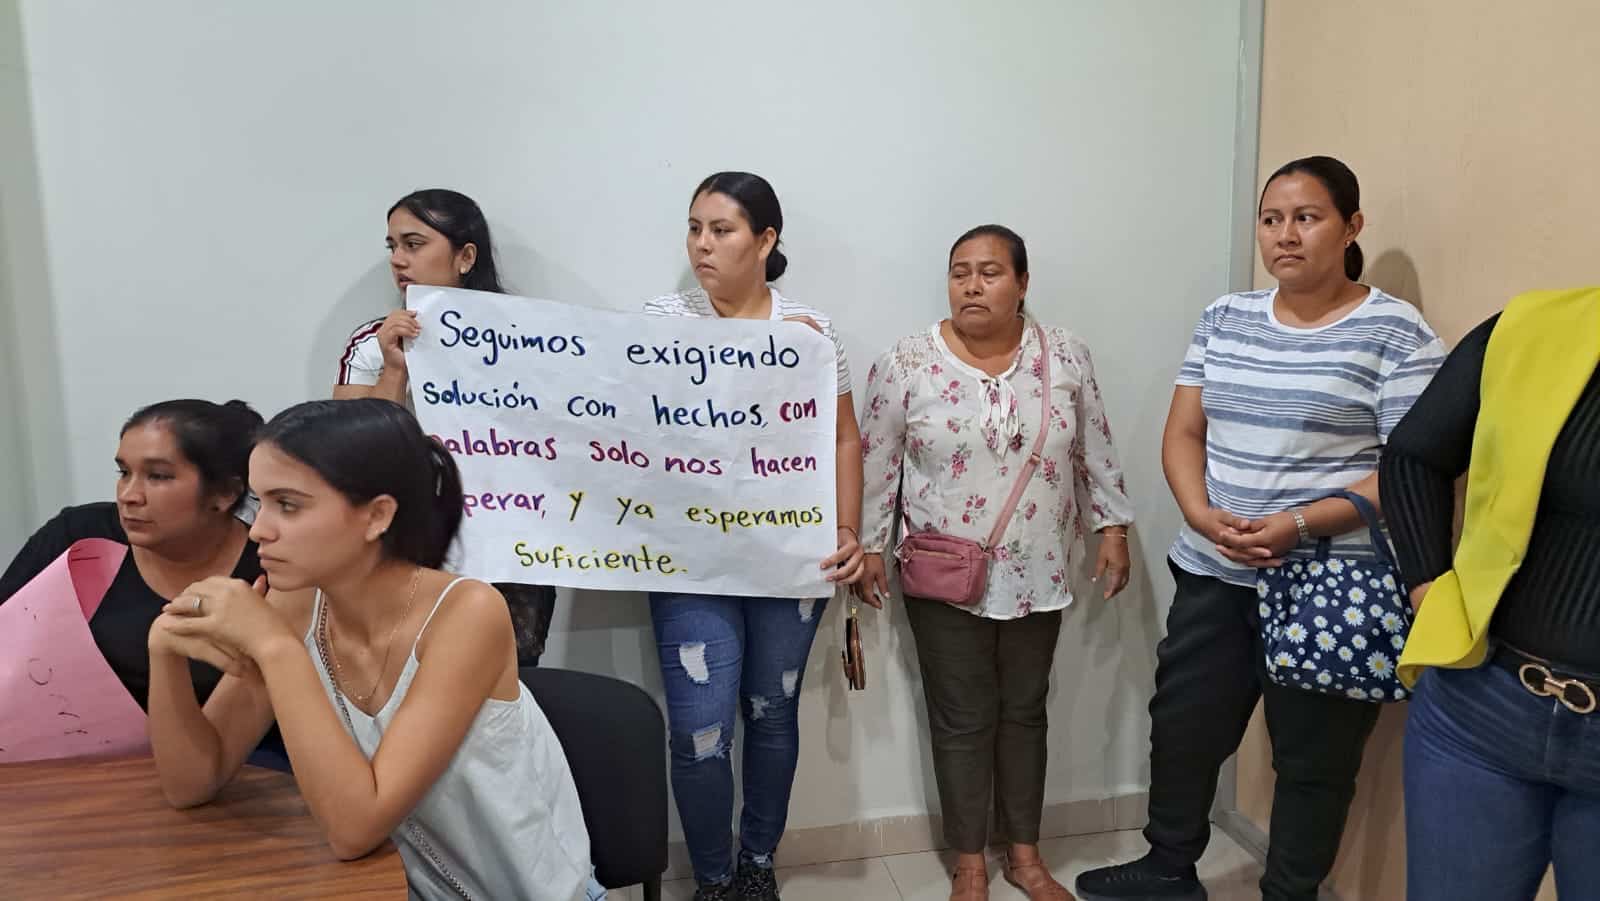 Seguimos exigiendo
solución con hechos, con
alabras solo nos hacen
perar, y ya esperamos
suficiente.